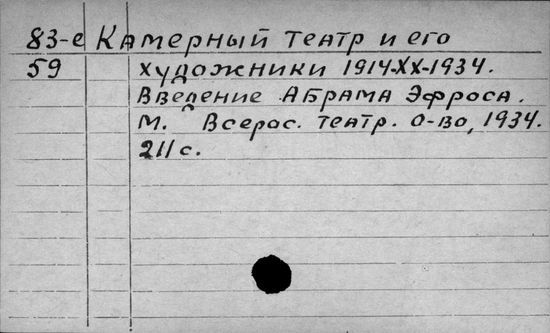 83-е Камерный театр и его
59 художники 1914-XX-1934.
Введение Абрама Эфроса.
М. Всерос. театр. о-во, 1934.
211 с.